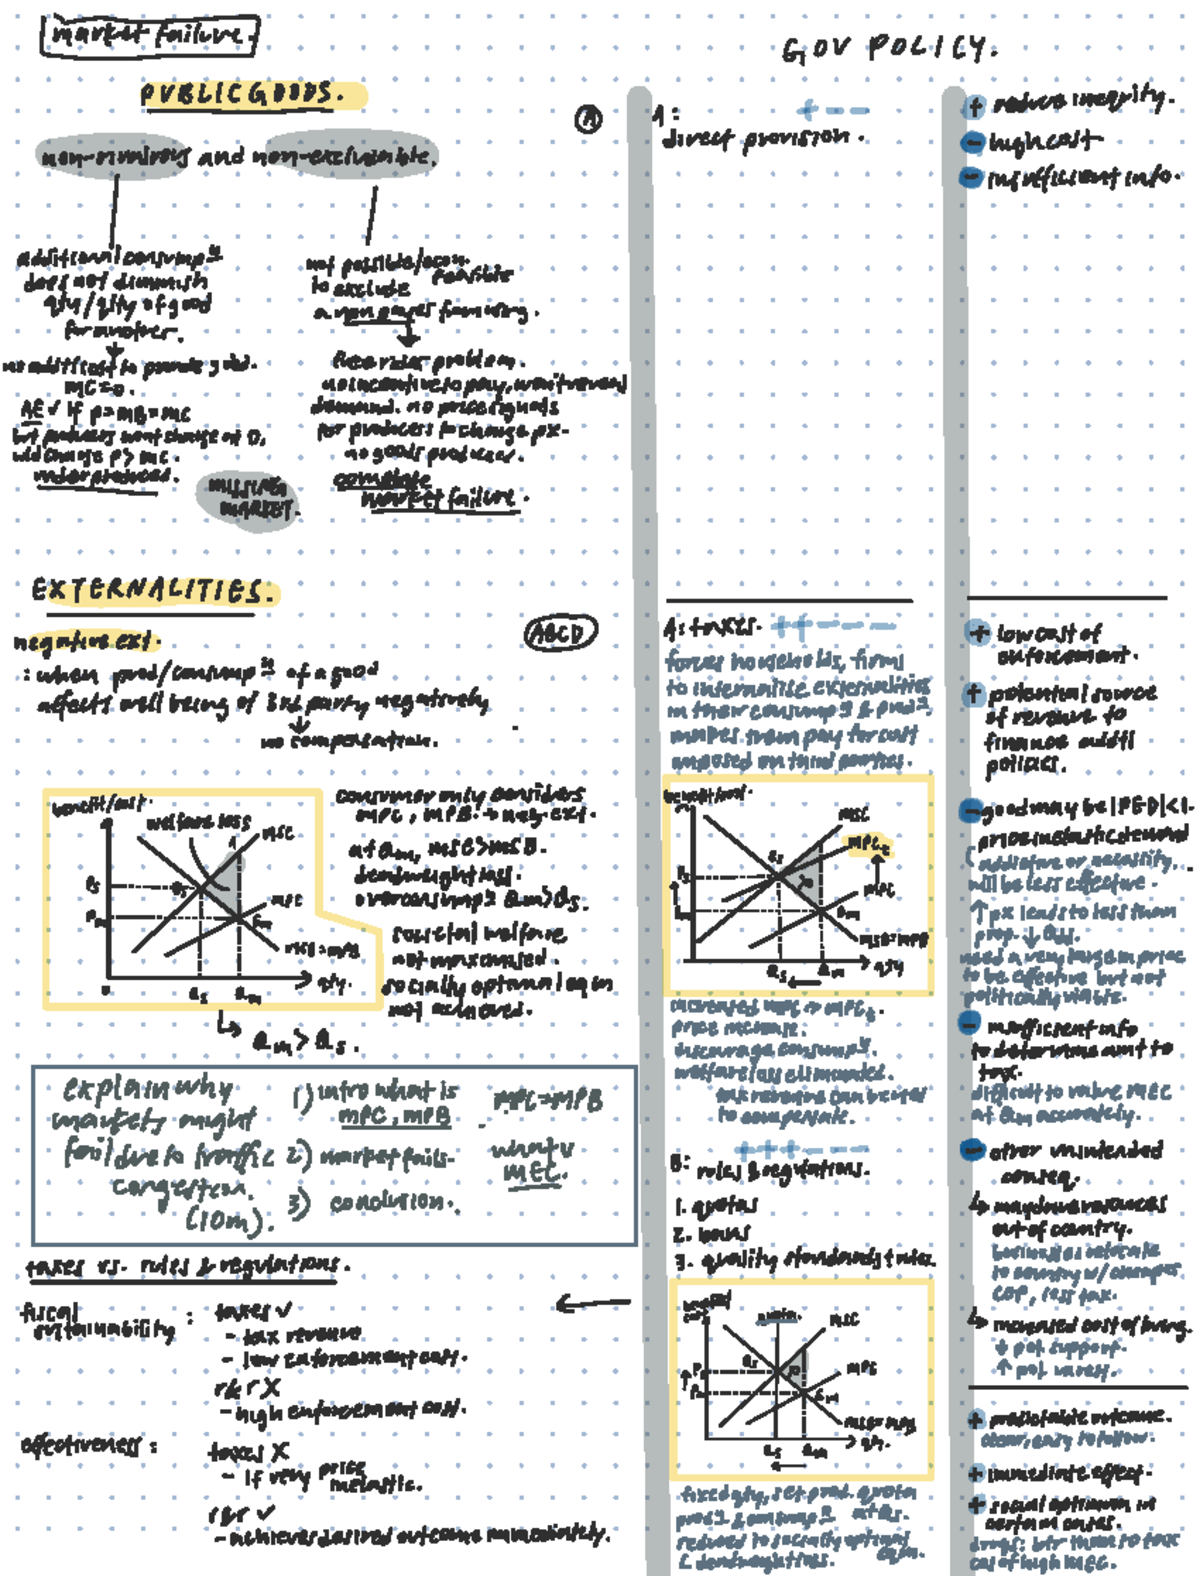 market failure.
GOV POLICY.
PUBLIC GOODS.
non-rivalrous and non-excludable.
additional consump^n
does not diminish
qty/qlty of good
for another.
no addit cost to provide good.
MC=0.
AE ✓ if P=MB=MC
but producers wont charge at 0,
will charge P> MC.
underproduced.
not possible/econ. feasible
to exclude
a non payer from using.
free rider problem.
no incentive to pay, won't reveal
demand. no price signals
for producers to charge px.
no goods produced.
complete
market failure.
MISSING
MARKET.
A
A:
direct provision.
+ reduce inequity.
- high cost
- insufficient info.
EXTERNALITIES.
negative ext.
ABCD
: when prod/consump^n of a good
affects well being of 3rd party negatively
no compensation.
benefit/cost.
welfare loss
A
MSC
MPC
MSB=MPB
Ps
Pm
Es
Em
0
Qs
Qm
qty.
Qm > Qs.
consumer only considers
MPC, MPB. → neg. ext.
at Qm, MSC>MSB.
deadweight loss.
overconsump^n Qm>Qs.
societal welfare
not maximised.
socially optimal eqm
not achieved.
explain why
markets might
fail due to traffic
congestion.
(10m).
1) intro what is
MPC, MPB
2) market fails.
3) conclusion.
MPC=MPB
what's
MEC.
taxes vs. rules & regulations.
fiscal
sustainability :
taxes ✓
- tax revenue
- low enforcement cost.
r&r X
- high enforcement cost.
effectiveness :
taxes X
- if very price
inelastic.
r&r ✓
- achieves desired outcome immediately.
A: taxes. ++---
forces households, firms
to internalise externalities
in their consump^n & prod^n,
makes them pay for cost
imposed on third parties.
benefit/cost.
MSC
MPCt
MPC
MSB=MPB
Es
Em
Ps
Pm
Qs
Qm
qty
increased MPC → MPCt.
price increase.
discourage consump^n.
welfare loss eliminated.
tax revenue can be used
to compensate.
+++--
B:
rules & regulations.
1. quotas
2. bans
3. quality standards & rules.
benefit/
cost.
quota.
MSC
MPC
MSB=MPB
Es
Em
Ps
Pm
Qs
Qm
qty.
fixed qty, set prod. quota
prod^n & consump^n at Qs.
reduced to socially optimal
eqm.
L deadweight loss.
+ low cost of
enforcement.
+ potential source
of revenue to
finance addtl
policies.
- good may be |PED|<1.
price inelastic demand
( addictive or necessity,
will be less effective.
↑ px leads to less than
prop. ↓ Qdd.
need a very large in price
to be effective but not
politically viable.
- insufficient info
to determine amt to
tax.
difficult to value MEC
at Qm accurately.
- other unintended
conseq.
↳ may drive resources
out of country.
businesses relocate
to country w/ cheaper
COP, less tax.
↳ increased cost of living.
↓ pol. support.
↑ pol. unrest.
+ predictable outcome.
clear, easy to follow.
+ immediate effect.
+ social optimum in
certain cases.
drugs: btr than to tax
cos of high MEC.